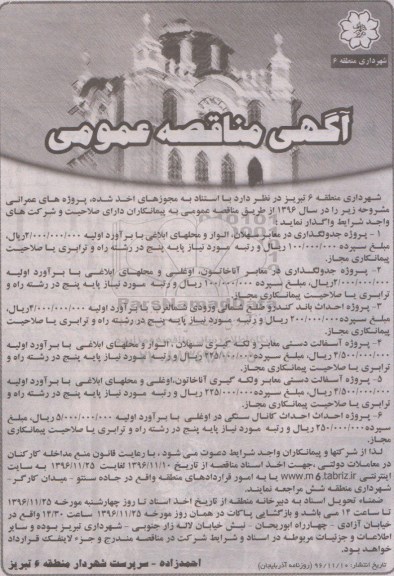 شهرداری منطقه ۶
آگهی مناقصه عمومی
شهرداری منطقه ۶ تبریز در نظر دارد با استناد به مجوزهای اخذ شده، پروژه های عمرانی
مشروحه زیر را در سال ۱۳۹۶ از طریق مناقصه عمومی به پیمانکاران دارای صلاحیت و شرکت های
واجد شرایط واگذار نماید:
۱- پروژه جدولگذاری در معابر سهلان، الوار و محلهای ابلاغی با برآورد اولیه ۲/۰۰۰/۰۰۰/۰۰۰ریال،
مبلغ سپرده ۱۰۰/۰۰۰/۰۰۰ ریال و رتبه مورد نیاز پایه پنج در رشته راه و ترابری یا صلاحیت
پیمانکاری مجاز.
۲- پروژه جدولگذاری در معابر آناخاتون، اوغلی و محلهای ابلاغی با برآورد اولیه
۲/۰۰۰/۰۰۰/۰۰۰ریال، مبلغ سپرده ۱۰۰/۰۰۰/۰۰۰ ریال و رتبه مورد نیاز پایه پنج در رشته راه و
ترابری یا صلاحیت پیمانکاری مجاز.
۳- پروژه احداث باند کندرو ضلع شمالی ورودی با برآورد اولیه ۴/۰۰۰/۰۰۰/۰۰۰ریال،
مبلغ سپرده ۲۰۰/۰۰۰/۰۰۰ ریال و رتبه مورد نیاز پایه پنج در رشته راه و ترابری یا صلاحیت
پیمانکاری مجاز.
۴- پروژه آسفالت دستی معابر و لکه گیری سهلان، الوار و محلهای ابلاغی با برآورد اولیه
۴/۵۰۰/۰۰۰/۰۰۰ ریال، مبلغ سپرده ۲۲۵/۰۰۰/۰۰۰ ریال و رتبه مورد نیاز پایه پنج در رشته راه و
ترابری یا صلاحیت پیمانکاری مجاز.
۵- پروژه آسفالت دستی معابر ولکه گیری آناخاتون، اوغلی و محلهای ابلاغی با برآورد اولیه
۴/۵۰۰/۰۰۰/۰۰۰ ریال، مبلغ سپرده ۲۲۵/۰۰۰/۰۰۰ ریال و رتبه مورد نیاز پایه پنج در رشته راه و
ترابری یا صلاحیت پیمانکاری مجاز.
۶- پروژه احداث احداث کانال سنگی در اوغلی با برآورد اولیه ۵/۰۰۰/۰۰۰/۰۰۰ریال، مبلغ
سپرده ۲۵۰/۰۰۰/۰۰۰ ریال و رتبه مورد نیاز پایه پنج در رشته راه و ترابری یا صلاحیت پیمانکاری
مجاز.
لذا از شرکتها و پیمانکاران واجد شرایط دعوت می شود، با رعایت قانون منع مداخله کارکنان
در معاملات دولتی، جهت اخذ اسناد مناقصه از تاریخ ۱۳۹۶/۱۱/۱۰ لغایت ۱۳۹۶/۱۱/۲۵ به سایت
اینترنتی www.m6.tabriz.ir یا به امور قراردادهای منطقه واقع در جاده سنتو - میدان کارگر-
شهرداری منطقه شش مراجعه نمایند.
ضمنا، تحویل اسناد به دبیرخانه منطقه از تاریخ اخذ اسناد تا روز چهارشنبه مورخه ۱۳۹۶/۱۱/۲۵
تا ساعت ۱۴ می باشد و بازگشایی پاکات در همان روز مورخه ۱۳۹۶/۱۱/۲۵ ساعت ۱۴/۳۰ واقع در
خیابان آزادی - چهارراه ابوریحان - نبش خیابان لاله زار جنوبی - شهرداری تبریز بوده و سایر
اطلاعات و جزئیات مربوطه در اسناد و شرایط شرکت در مناقصه مندرج و جزء لاینفک قرارداد
خواهد بود.
تاریخ انتشار: ۹۶/۱۱/۱۰ (روزنامه آذربایجان)
احمدزاده - سرپرست شهردار منطقه ۶ تبریز